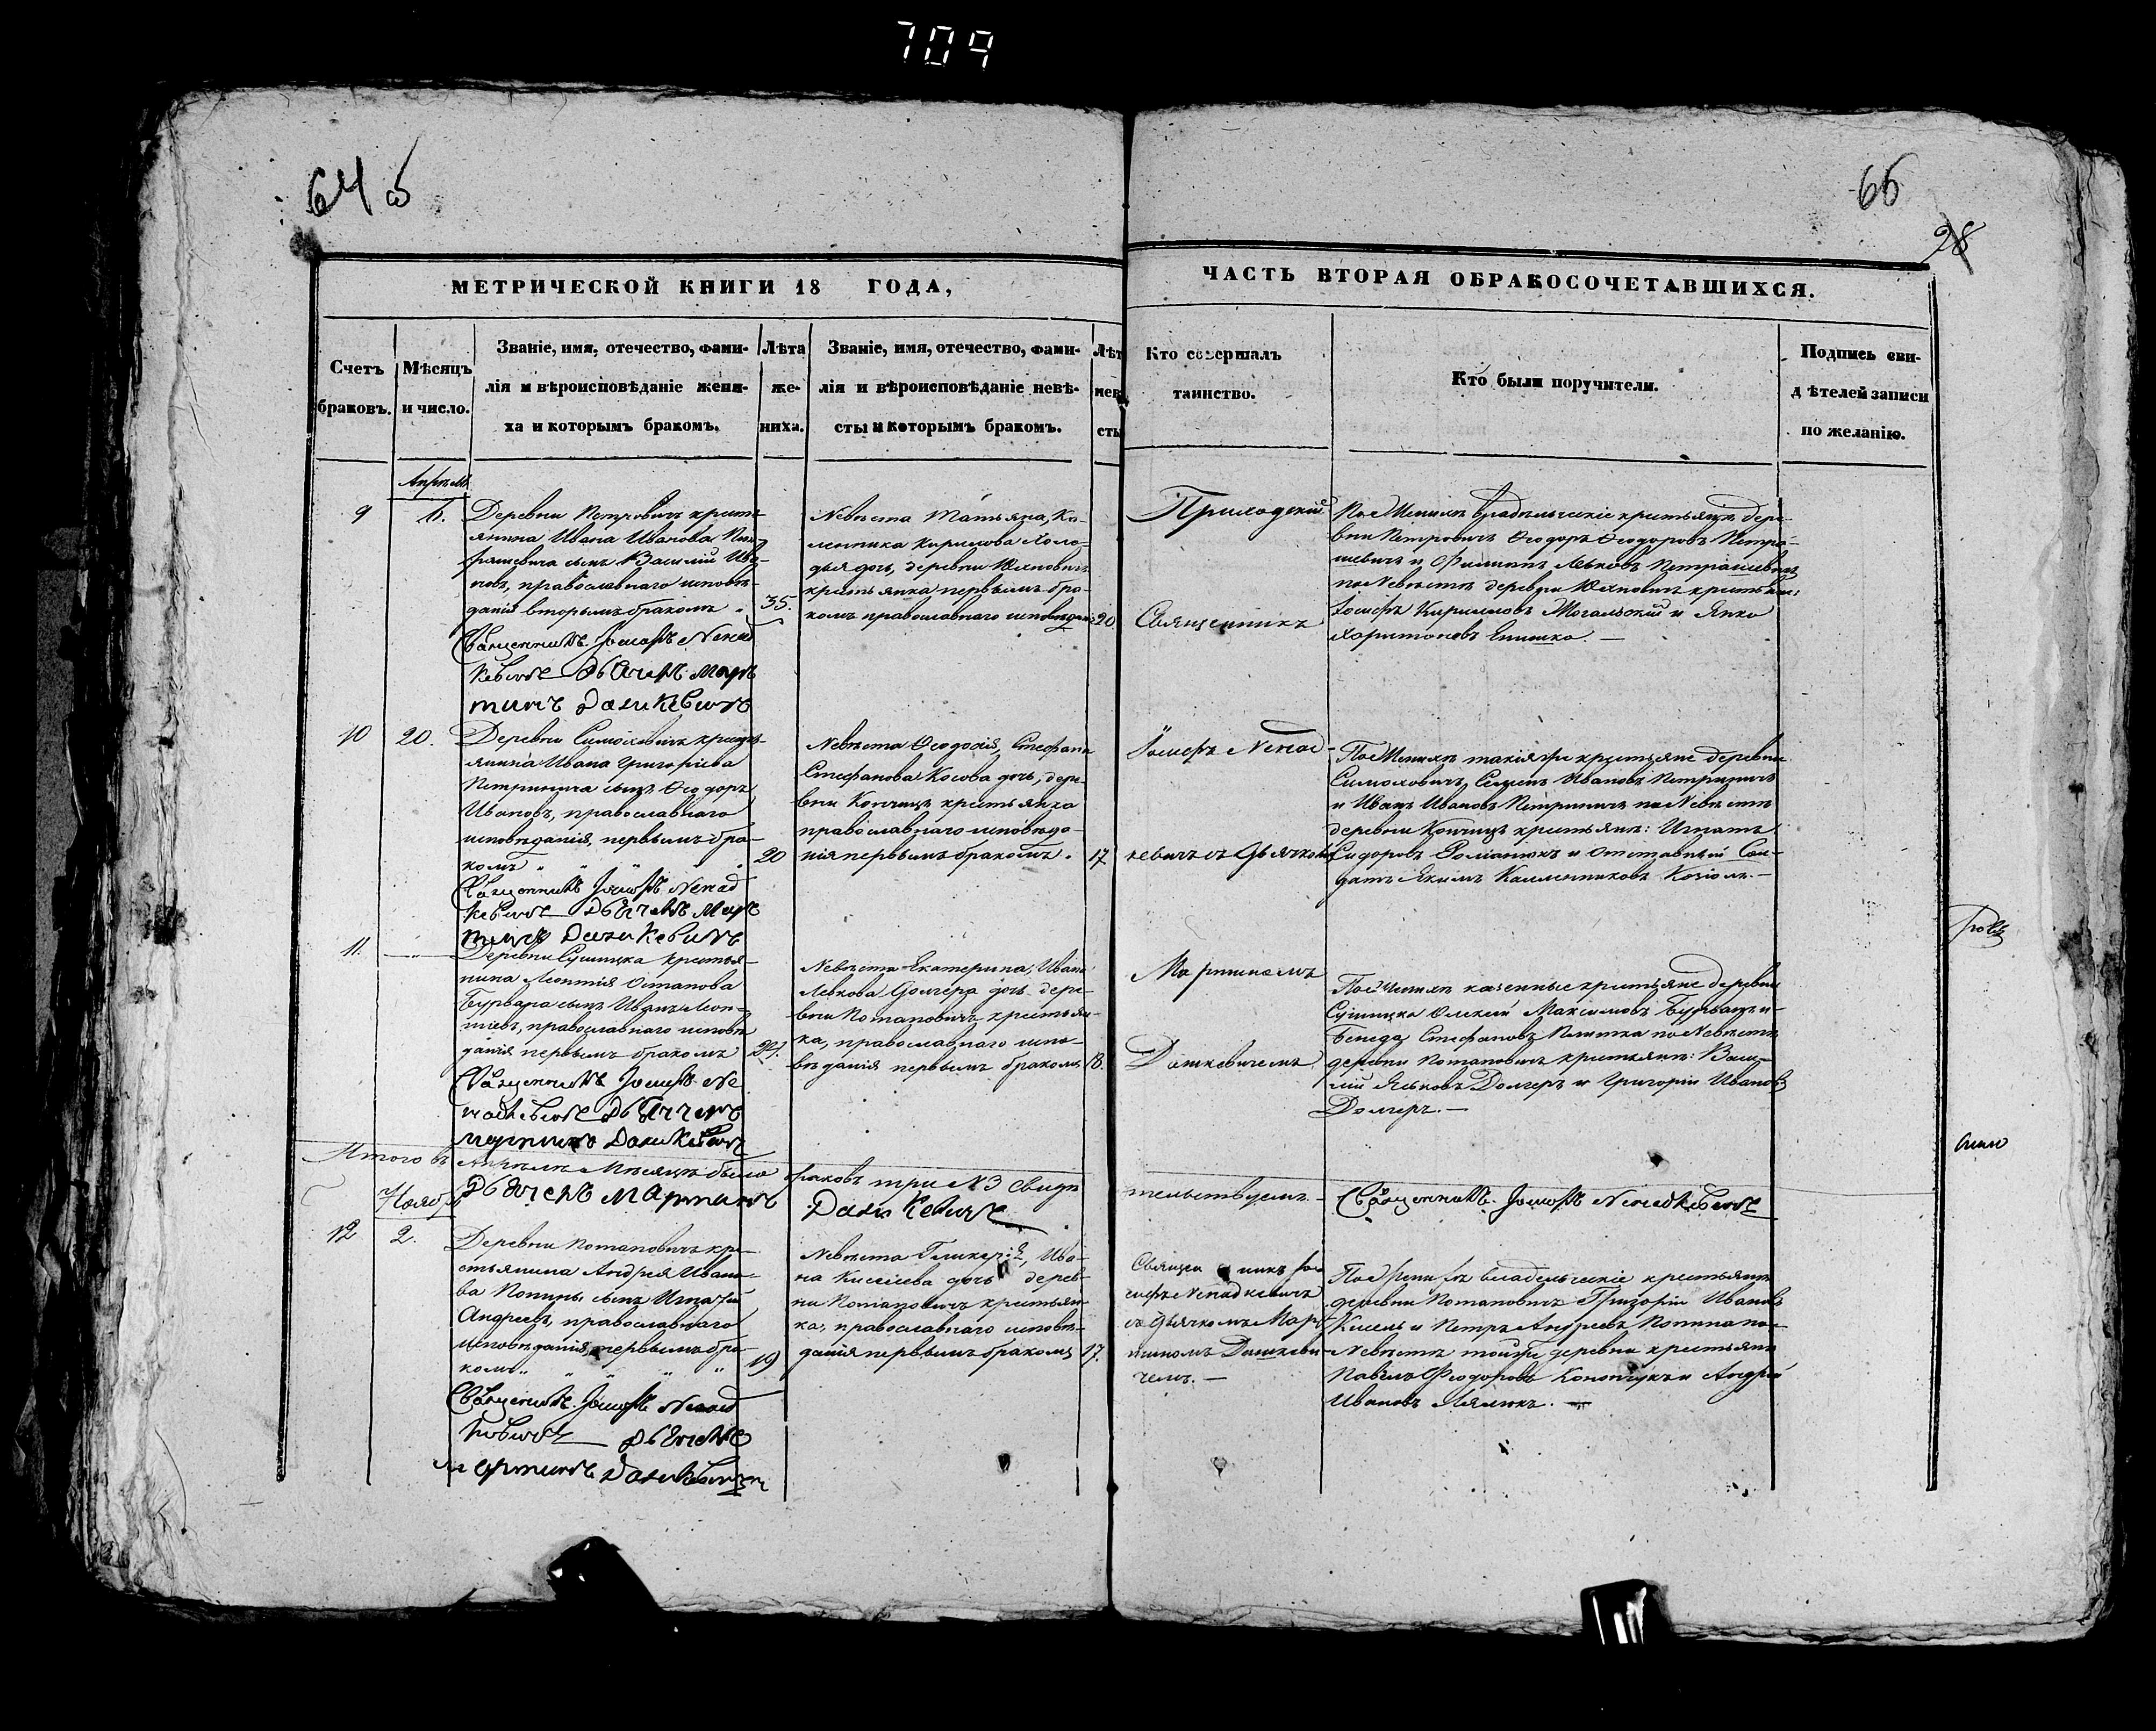 709
64 об
66
28
МЕТРИЧЕСКОЙ КНИГИ 18 ГОДА,
ЧАСТЬ ВТОРАЯ ОБРАКОСОЧЕТАВШИХСЯ.
Счетъ
браковъ.
Мѣсяцъ
и число.
Званіе, имя, отечество, фами-
лія и вѣроисповѣданіе жени-
ха и которымъ бракомъ.
Лѣта
же-
ниха.
Званіе, имя, отечество, фами-
лія и вѣроисповѣданіе невѣ-
сты и которымъ бракомъ.
Лѣт
нев
сты
Кто совершалъ
таинство.
Кто были поручители.
Подпись сви-
дѣтелей записи
по желанію.
Апрѣль
9
Деревни Петровичъ кресть
янина Ивана Иванова
сынъ Василій Ива-
новъ, православнаго исповѣ-
данія вторымъ бракомъ
35.
Священникъ Іосифъ Ненад
кевичъ Дьячекъ Мар
тинъ Дашкевичъ
Невѣста Татьяна, Ка-
леника Кирилова Холо-
дья дочь, деревни
крестьянка первымъ бра-
комъ православнаго исповѣдан
20
Приходскій
Священникъ
По Женихѣ владѣльческіе крестьяне дере-
вни Петровичъ Ѳеодоръ Ѳеодоровъ Петра-
шевичъ и Филипъ Львовъ Петрашевичъ
по Невѣстѣ деревни крестьяне:
Іосифъ Кириловъ Могальскій и Янко
Харитоновъ
10
20.
Деревни Симоховичъ кресть-
янина Ивана Григоріева
Петринича сынъ Ѳеодоръ
Ивановъ, православнаго
исповѣданія, первымъ бра-
комъ
20
Священникъ Іосифъ Ненад
кевичъ Дьячекъ Мар
тинъ Дашкевичъ
Невѣста Ѳеодосія, Стефана
Стефанова Косова дочь, дере-
вни Кончицъ крестьянка
православнаго исповѣда-
нія первымъ бракомъ.
17
Іосифъ Ненад-
кевичъ съ Дьячкомъ
По Женихѣ такіяже крестьяне деревни
Симоховичъ, Семенъ Ивановъ Петриничъ
и Иванъ Ивановъ Петриничъ по Невѣстѣ
деревни Кончицъ крестьяне: Игнатъ
Сидоровъ Романюкъ и отставный Сол-
датъ Якимъ Калениковъ Козіолъ.
11.
Деревни Сушицка крестья-
нина Леонтія Остапова
Бурбара сынъ Иванъ Леон-
тіевъ, православнаго исповѣ
данія первымъ бракомъ
24.
Священникъ Іосифъ Не
надкевичъ Дьячекъ
Мартинъ Дашкевичъ
Невѣста Екатерина, Ивана
Левкова Долгера дочь дере-
вни Потаповичъ крестьян-
ка, православнаго испо-
вѣданія первымъ бракомъ
18.
Мартиномъ
Дашкевичемъ
По Женихѣ казенные крестьяне деревни
Сушицка Алексѣй Максимовъ и
Стефановъ по Невѣстѣ
деревни Потаповичъ крестьяне: Васи-
лій Яковъ Долгеръ и Григорій Ивановъ
Долгеръ.
Итого въ Апрѣлѣ Мѣсяцѣ было браковъ три N 3 Свидѣтельствуемъ.
Дьячекъ Мартинъ Дашкевичъ
Священникъ Іосифъ Ненадкевичъ
Ноябрь
12
2.
Деревни Потаповичъ кре-
стьянина Андрея Ивано-
ва Попины сынъ Игнатій
Андреевъ, православнаго
исповѣданія, первымъ бра-
комъ
19
Священникъ Іосифъ Ненад
кевичъ Дьячекъ
Мартинъ Дашкевичъ
Невѣста Гликерія, Ива-
на Киселева дочь дерев-
ни Потаповичъ крестьян-
ка, православнаго исповѣ-
данія первымъ бракомъ
17.
Священникъ Іо-
сифъ Ненадкевичъ
съ Дьячкомъ Мар-
тиномъ Дашкеви-
чемъ.
По Женихѣ владѣльческіе крестьяне
деревни Потаповичъ Григорій Ивановъ
Кисель и Петръ Андреевъ Попина по
Невѣстѣ тойже деревни крестьяне
Павелъ Ѳеодоровъ Кононцукъ и Андрей
Ивановъ